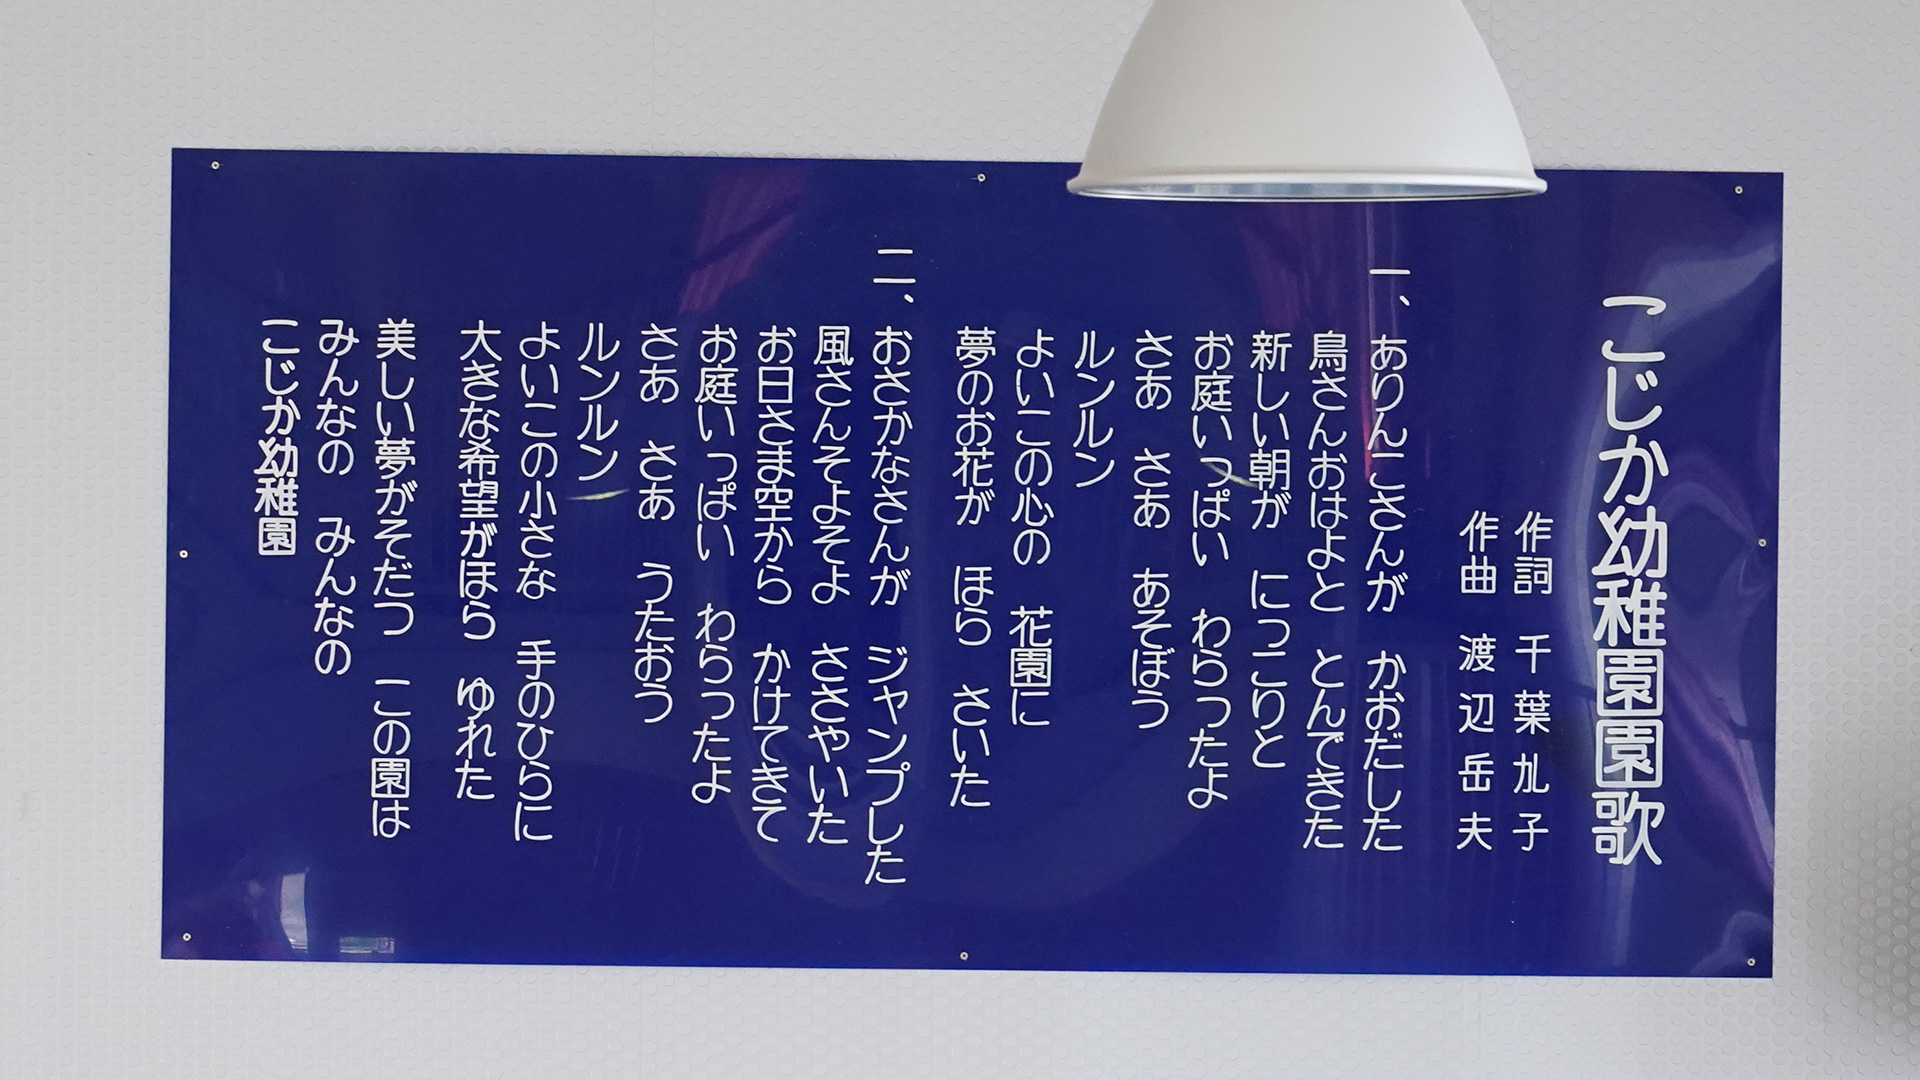 こじか幼稚園園歌
作詞 千葉丠子
作曲 渡辺岳夫
一、ありんこさんが かおだした
鳥さんおはよと とんできた
新しい朝が にっこりと
お庭いっぱい わらったよ
さあ さあ あそぼう
ルンルン
よいこの心の 花園に
夢のお花が ほら さいた
二、おさかなさんが ジャンプした
風さんそよそよ ささやいた
お日さま空から かけてきて
お庭いっぱい わらったよ
さあ さあ うたおう
ルンルン
よいこの小さな 手のひらに
大きな希望がほら ゆれた
美しい夢がそだつ この園は
みんなの みんなの
こじか幼稚園